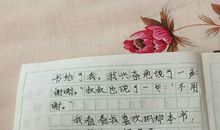 书给了我。我兴奋地说了一声
谢谢。"叔叔也说了一句:"不用
谢。"
我看着我喜欢的那本书,